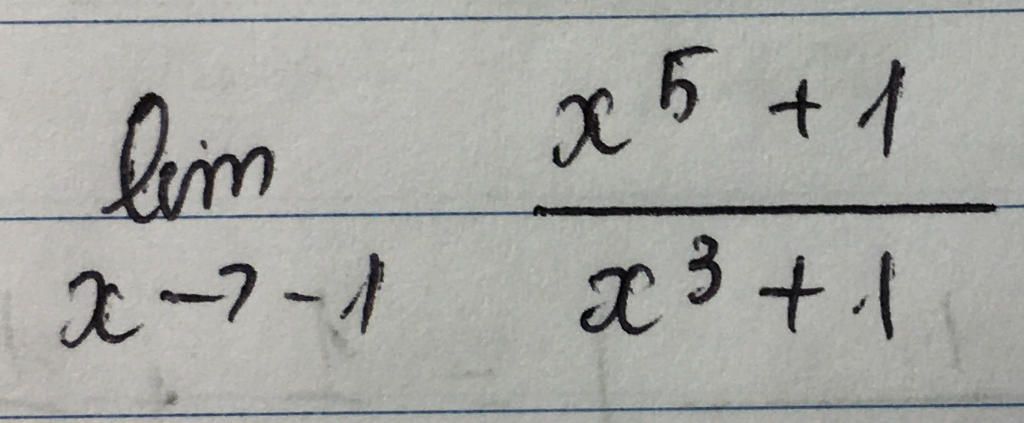 lim x⁵ + 1
x → -1 x³ + 1